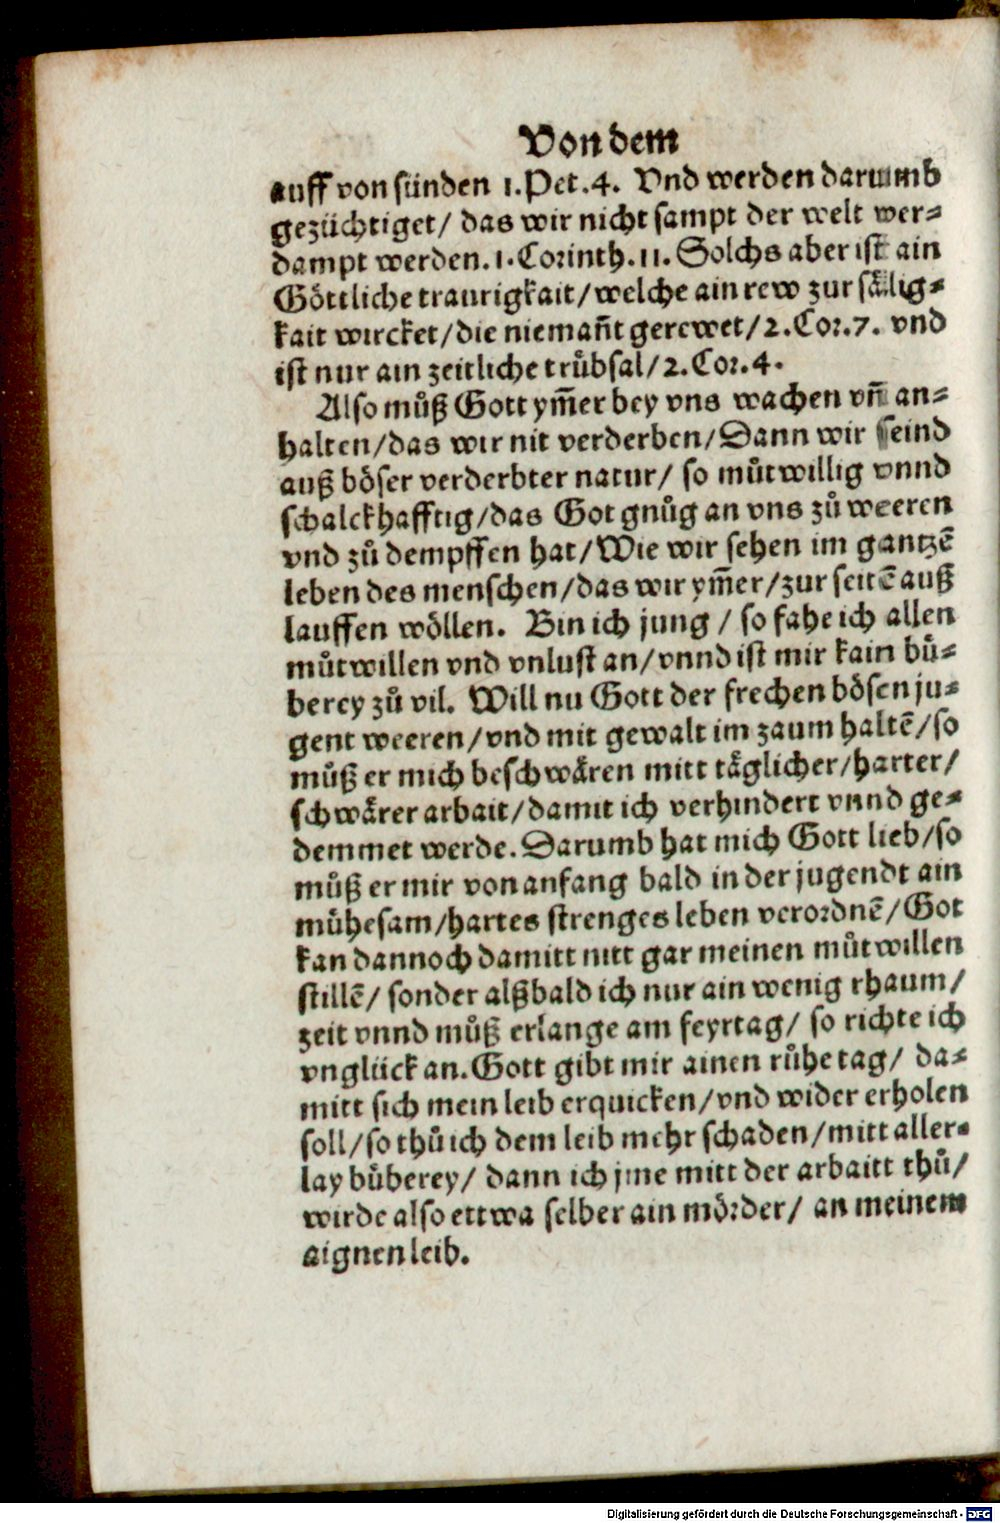 Von dem
auff von sünden 1.Pet.4. Vnd werden darumb
gezüchtiget/ das wir nicht sampt der welt wer⸗
dampt werden.1.Corinth.11. Solchs aber ist ain
Göttliche traurigkait/welche ain rew zur sälig⸗
kait wircket/die niemañt gerewet/2.Cor.7. vnd
ist nur ain zeitliche trübsal/2.Cor.4.
Also můß Gott ym̃er bey vns wachen vñ an⸗
halten/das wir nit verderben/Dann wir seind
auß böser verderbter natur/ so můtwillig vnnd
schalckhafftig/das Got gnůg an vns zů weeren
vnd zů dempffen hat/Wie wir sehen im gantzẽ
leben des menschen/das wir ym̃er/zur seitẽ auß
lauffen wöllen. Bin ich jung / so fahe ich allen
můtwillen vnd vnlust an/vnnd ist mir kain bů⸗
berey zů vil. Will nu Gott der frechen bösen ju⸗
gent weeren/vnd mit gewalt im zaum haltẽ/so
můß er mich beschwären mitt täglicher/harter/
schwärer arbait/damit ich verhindert vnnd ge⸗
demmet werde.Darumb hat mich Gott lieb/so
můß er mir von anfang bald in der jugendt ain
mühesam/hartes strenges leben verordnẽ/Got
kan dannoch damitt nitt gar meinen můtwillen
stillẽ/ sonder alßbald ich nur ain wenig rhaum/
zeit vnnd můß erlange am feyrtag/ so richte ich
vnglück an.Gott gibt mir ainen růhetag/ da⸗
mitt sich mein leib erquicken/vnd wider erholen
soll/so thů ich dem leib mehr schaden/mitt aller⸗
lay bůberey/ dann ich jme mitt der arbaitt thů/
wirde also ettwa selber ain mörder/ an meinem
aignen leib.
Digitalisierung gefördert durch die Deutsche Forschungsgemeinschaft - DFG